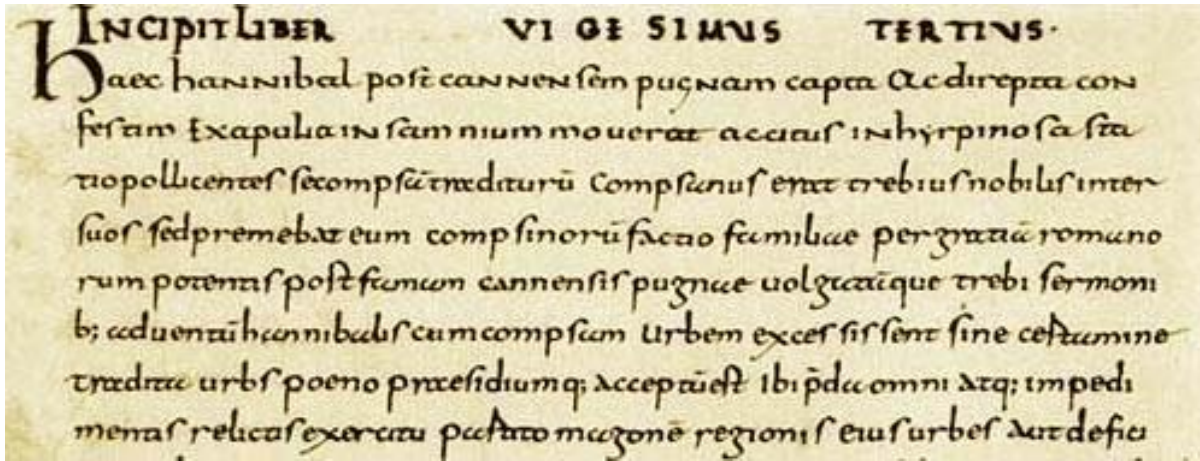 INCIPIT LIBER VIGESIMUS TERTIUS·
haec hannibal post cannensem pugnam capta ac direpta con
festim exapulia insamnium moverat accitus inhyrpinos a sta
tio pollicentes secompsā traditurū compsanus erat trebius nobilis inter
suos sedpremebat eum compsinorū factio familiae pergratiā romano
rum potentis post famam cannensis pugnae volgatāque trebi sermoni
b; adventū hannibalis cumcompsam urbem excessissent sine certamine
tradita urbs poeno praesidiumq; acceptūest ibi p̄da omni atq; impedi
mentis relictis exercitu partito magonē regionis eius urbes aut defici